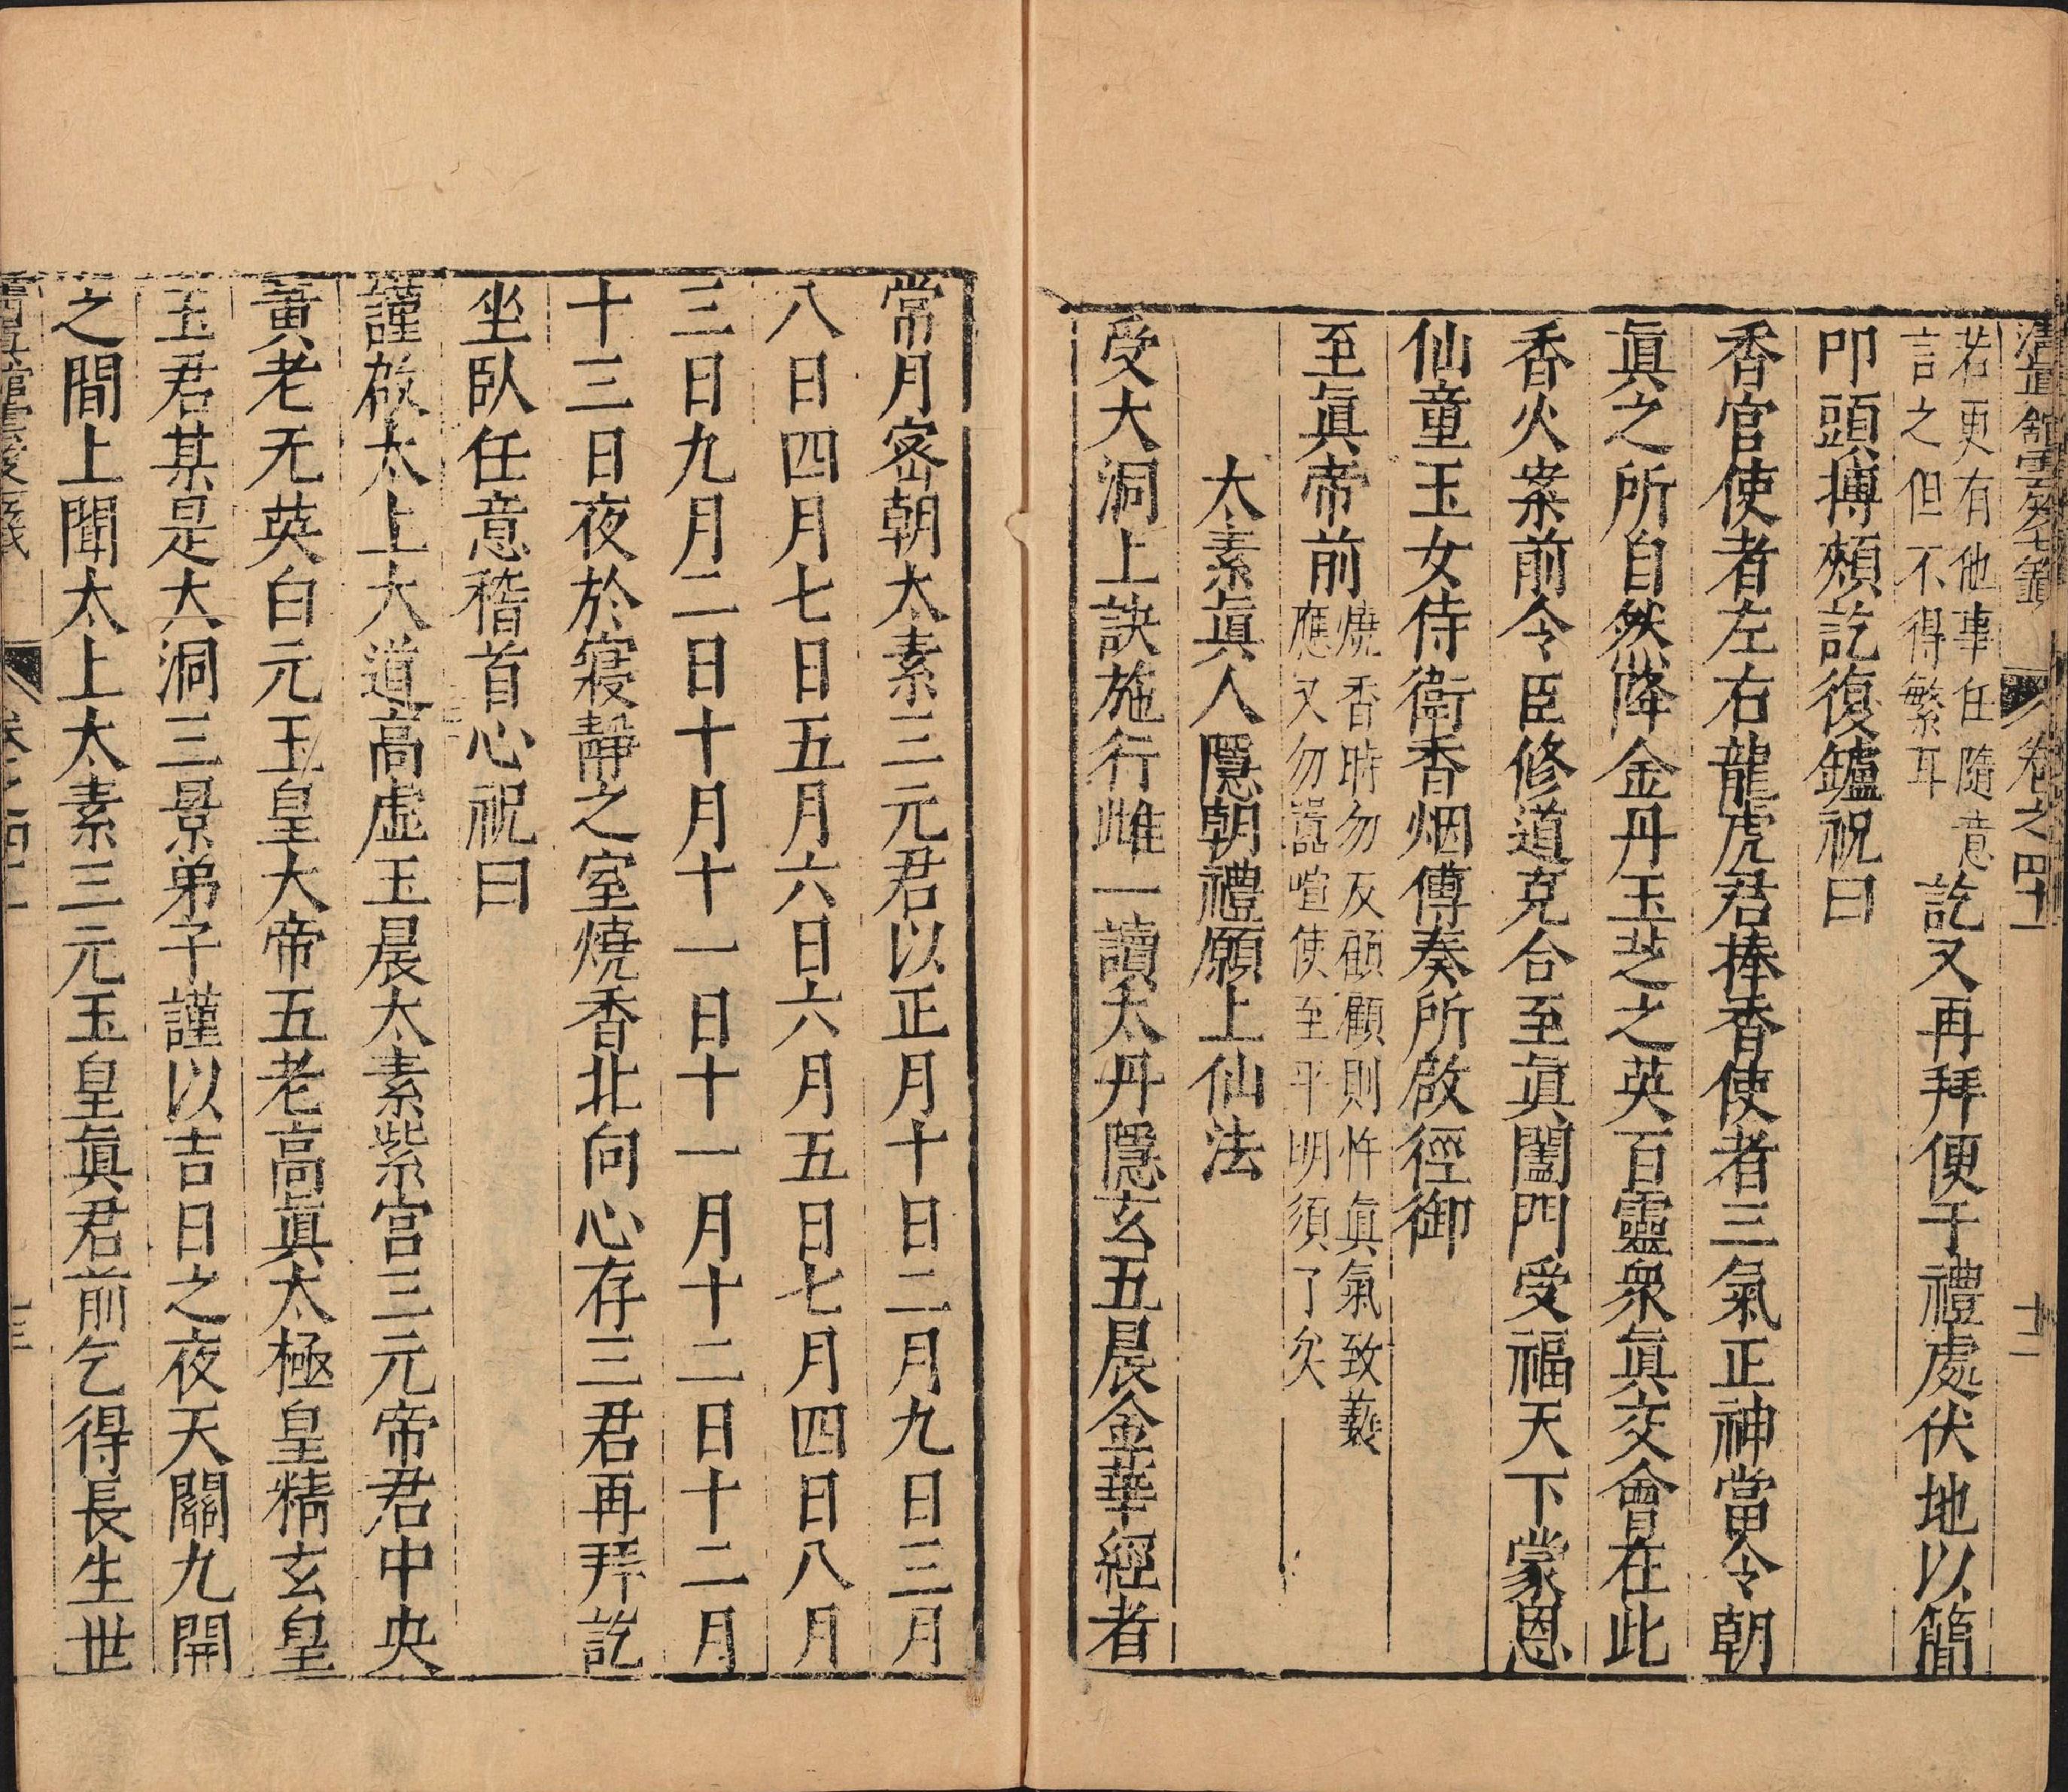 清眞館雲笈七籤 卷之四十一 十二
若更有他事任隨意
言之但不得繁耳
訖又再拜便于禮處伏地以簡
叩頭搏頰訖復鑪祝曰
香官使者左右龍虎君捧香使者三氣正神當令朝
眞之所自然降金丹玉芝之英百靈衆眞交會在此
香火案前令臣修道克合至眞闔門受福天下蒙恩
仙童玉女侍衛香烟傳奏所啟徑御
至眞帝前
燒香時勿反顧顧則忤眞氣致
應又勿囂喧使至平明須了矣
太素眞人隱朝禮願上仙法
受大洞上訣施行雌一讀太丹隱玄五晨金華經者
常月密朝太素三元君以正月十日二月九日三月
八日四月七日五月六日六月五日七月四日八月
三日九月二日十月十一日十一月十二日十二月
十三日夜於寢靜之室燒香北向心存三君再拜訖
坐臥任意稽首心祝曰
謹啟太上大道高虛玉晨太素紫宮三元帝君中央
黃老无英白元玉皇大帝五老高眞太極皇精玄皇
玉君某是大洞三景弟子謹以吉日之夜天關九開
之間上聞太上太素三元玉皇眞君前乞得長生世